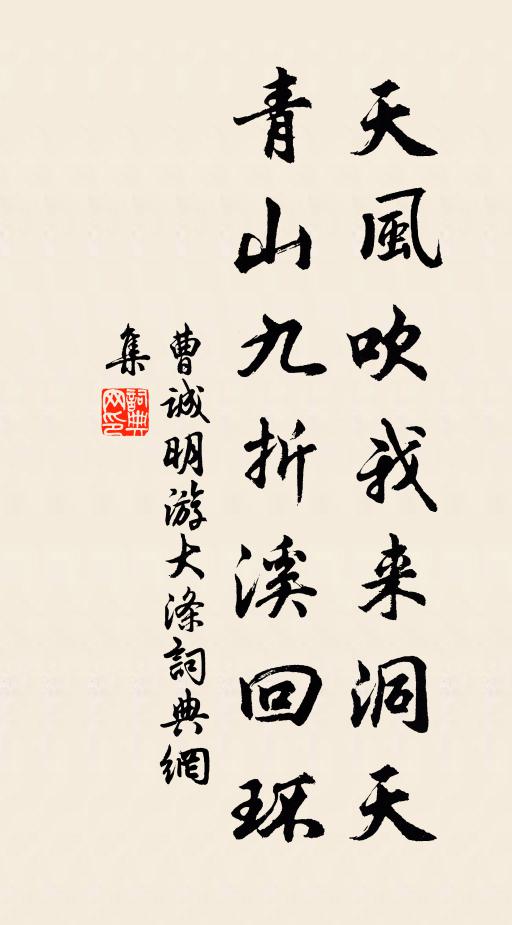 天風吹我来洞天
青山九折溪回环
曹誠明游大滌詞典網
集
詞典网印